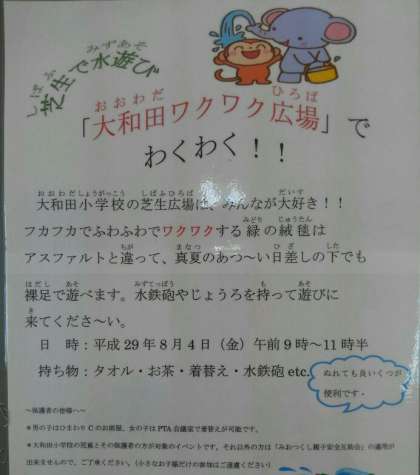 芝生で水遊び
「大和田ワクワク広場」で
わくわく！！
大和田小学校の芝生広場は、みんなが大好き！！
フカフカでふわふわでワクワクする緑の絨毯は
アスファルトと違って、真夏のあつ～い日差しの下でも
裸足で遊べます。水鉄砲やじょうろを持って遊びに
来てくださ～い。
日　時：平成29年8月4日（金）午前9時～11時半
持ち物：タオル・お茶・着替え・水鉄砲 etc.
ぬれても良いくつが
便利です・
～保護者の皆様へ～
＊男の子はひまわりCのお部屋、女の子はPTA会議室で着替えが可能です。
＊大和田小学校の児童とその保護者の方が対象のイベントです。それ以外の方は「みおつくし親子安全互助会」の適用が
出来ませんので、ご了承ください。（小さなお子様だけの参加はご遠慮ください）